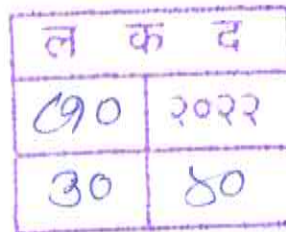 ल क द
७० २०२२
३० ४०